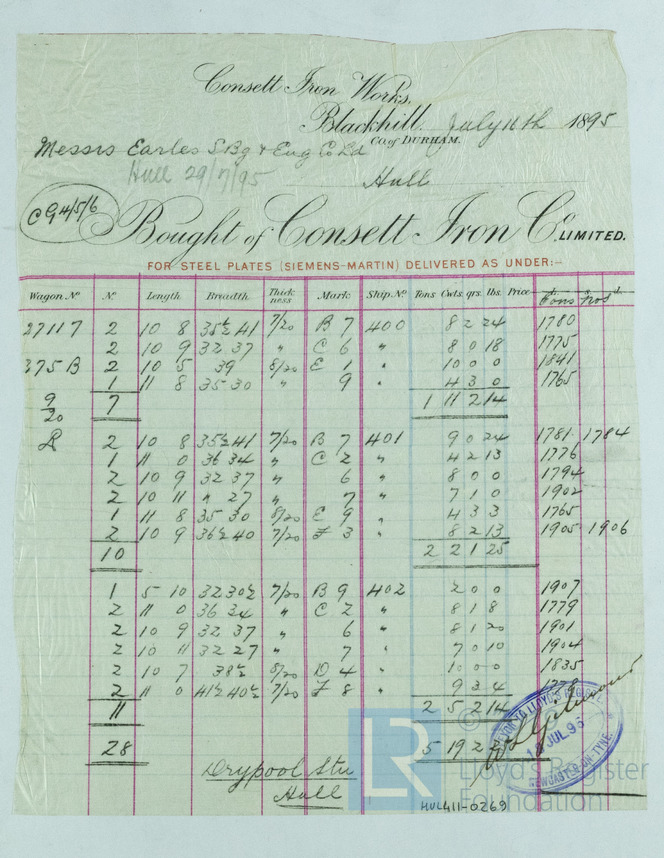 Consett Iron Works,
Blackhill. July 11th 1895
CO. OF DURHAM.
Messrs Earles S Bg & Eng Co Ld
Hull 29/7/95
Hull
CG 4/5/6
Bought of Consett Iron Co. LIMITED.
FOR STEEL PLATES (SIEMENS-MARTIN) DELIVERED AS UNDER:-
Wagon No No Length Breadth Thickness Mark Ship No Tons Cwts. qrs. lbs. Price
27117 2 10 8 35½ 41 7/20 B 7 400 8 2 24 1780
2 10 9 32 37 " C 6 " 8 0 18 1775
375 B 2 10 5 39 8/20 E 1 " 10 0 0 1841
1 11 8 35 30 " 9 " 4 3 0 1765
9/20 7 1 11 2 14
2 10 8 35½ 41 7/20 B 7 401 9 0 24 1781 1784
1 11 0 36 34 " C 2 " 4 2 13 1776
2 10 9 32 37 " 6 " 8 0 0 1794
2 10 11 " 27 " 7 " 7 1 0 1902
1 11 8 35 30 8/20 E 9 " 4 3 3 1765
2 10 9 36½ 40 7/20 F 3 " 8 2 13 1905 1906
10 2 2 1 25
1 5 10 32 30½ 7/20 B 9 402 2 0 0 1907
2 11 0 36 34 " C 2 " 8 1 8 1779
2 10 9 32 37 " 6 " 8 1 20 1901
2 10 11 32 27 " 7 " 7 0 10 1904
2 10 7 38½ 8/20 D 4 " 10 0 0 1835
2 11 0 41½ 40½ 7/20 F 8 " 9 3 4
11 2 5 2 14
28 5 19 2
Drypool Stn
Hull
TO LLOYD'S REGISTER
JUL 95
NEWCASTLE-ON-TYNE.
LR
©
Lloyd's Register
Foundation
HUL411-0269